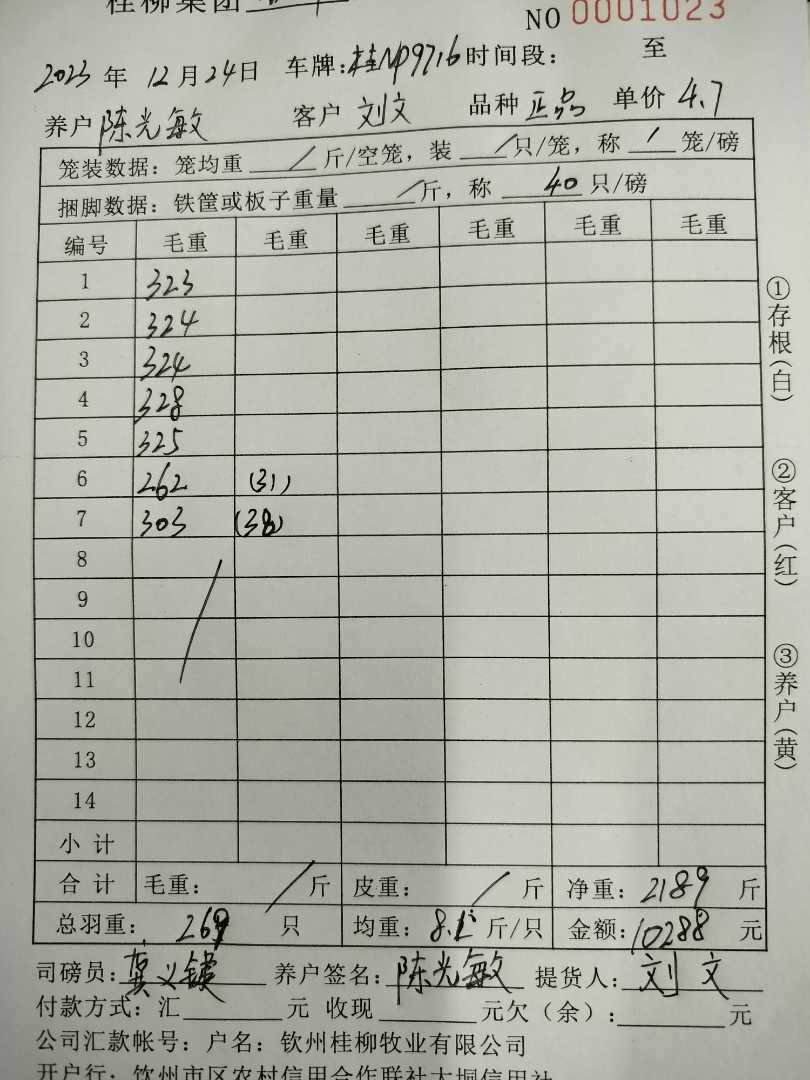 桂柳集团
NO 0001023
2023 年 12 月 24 日 车牌:桂NP9716 时间段: 至
养户 陈光敏 客户 刘文 品种 正品 单价 4.7
笼装数据: 笼均重 / 斤/空笼, 装 / 只/笼, 称 / 笼/磅
捆脚数据: 铁筐或板子重量 / 斤, 称 40 只/磅
编号 毛重 毛重 毛重 毛重 毛重 毛重
1 323
2 324
3 324
4 328
5 325
6 262 (31)
7 303 (38)
8
9
10
11
12
13
14
小计
合计 毛重: / 斤 皮重: / 斤 净重: 2189 斤
总羽重: 269 只 均重: 8.1 斤/只 金额: 10288 元
司磅员: 养户签名: 陈光敏 提货人: 刘文
付款方式: 汇 元 收现 元欠(余): 元
公司汇款帐号: 户名: 钦州桂柳牧业有限公司
开户行: 钦州市区农村信用合作联社大垌信用社
①存根(白)
②客户(红)
③养户(黄)